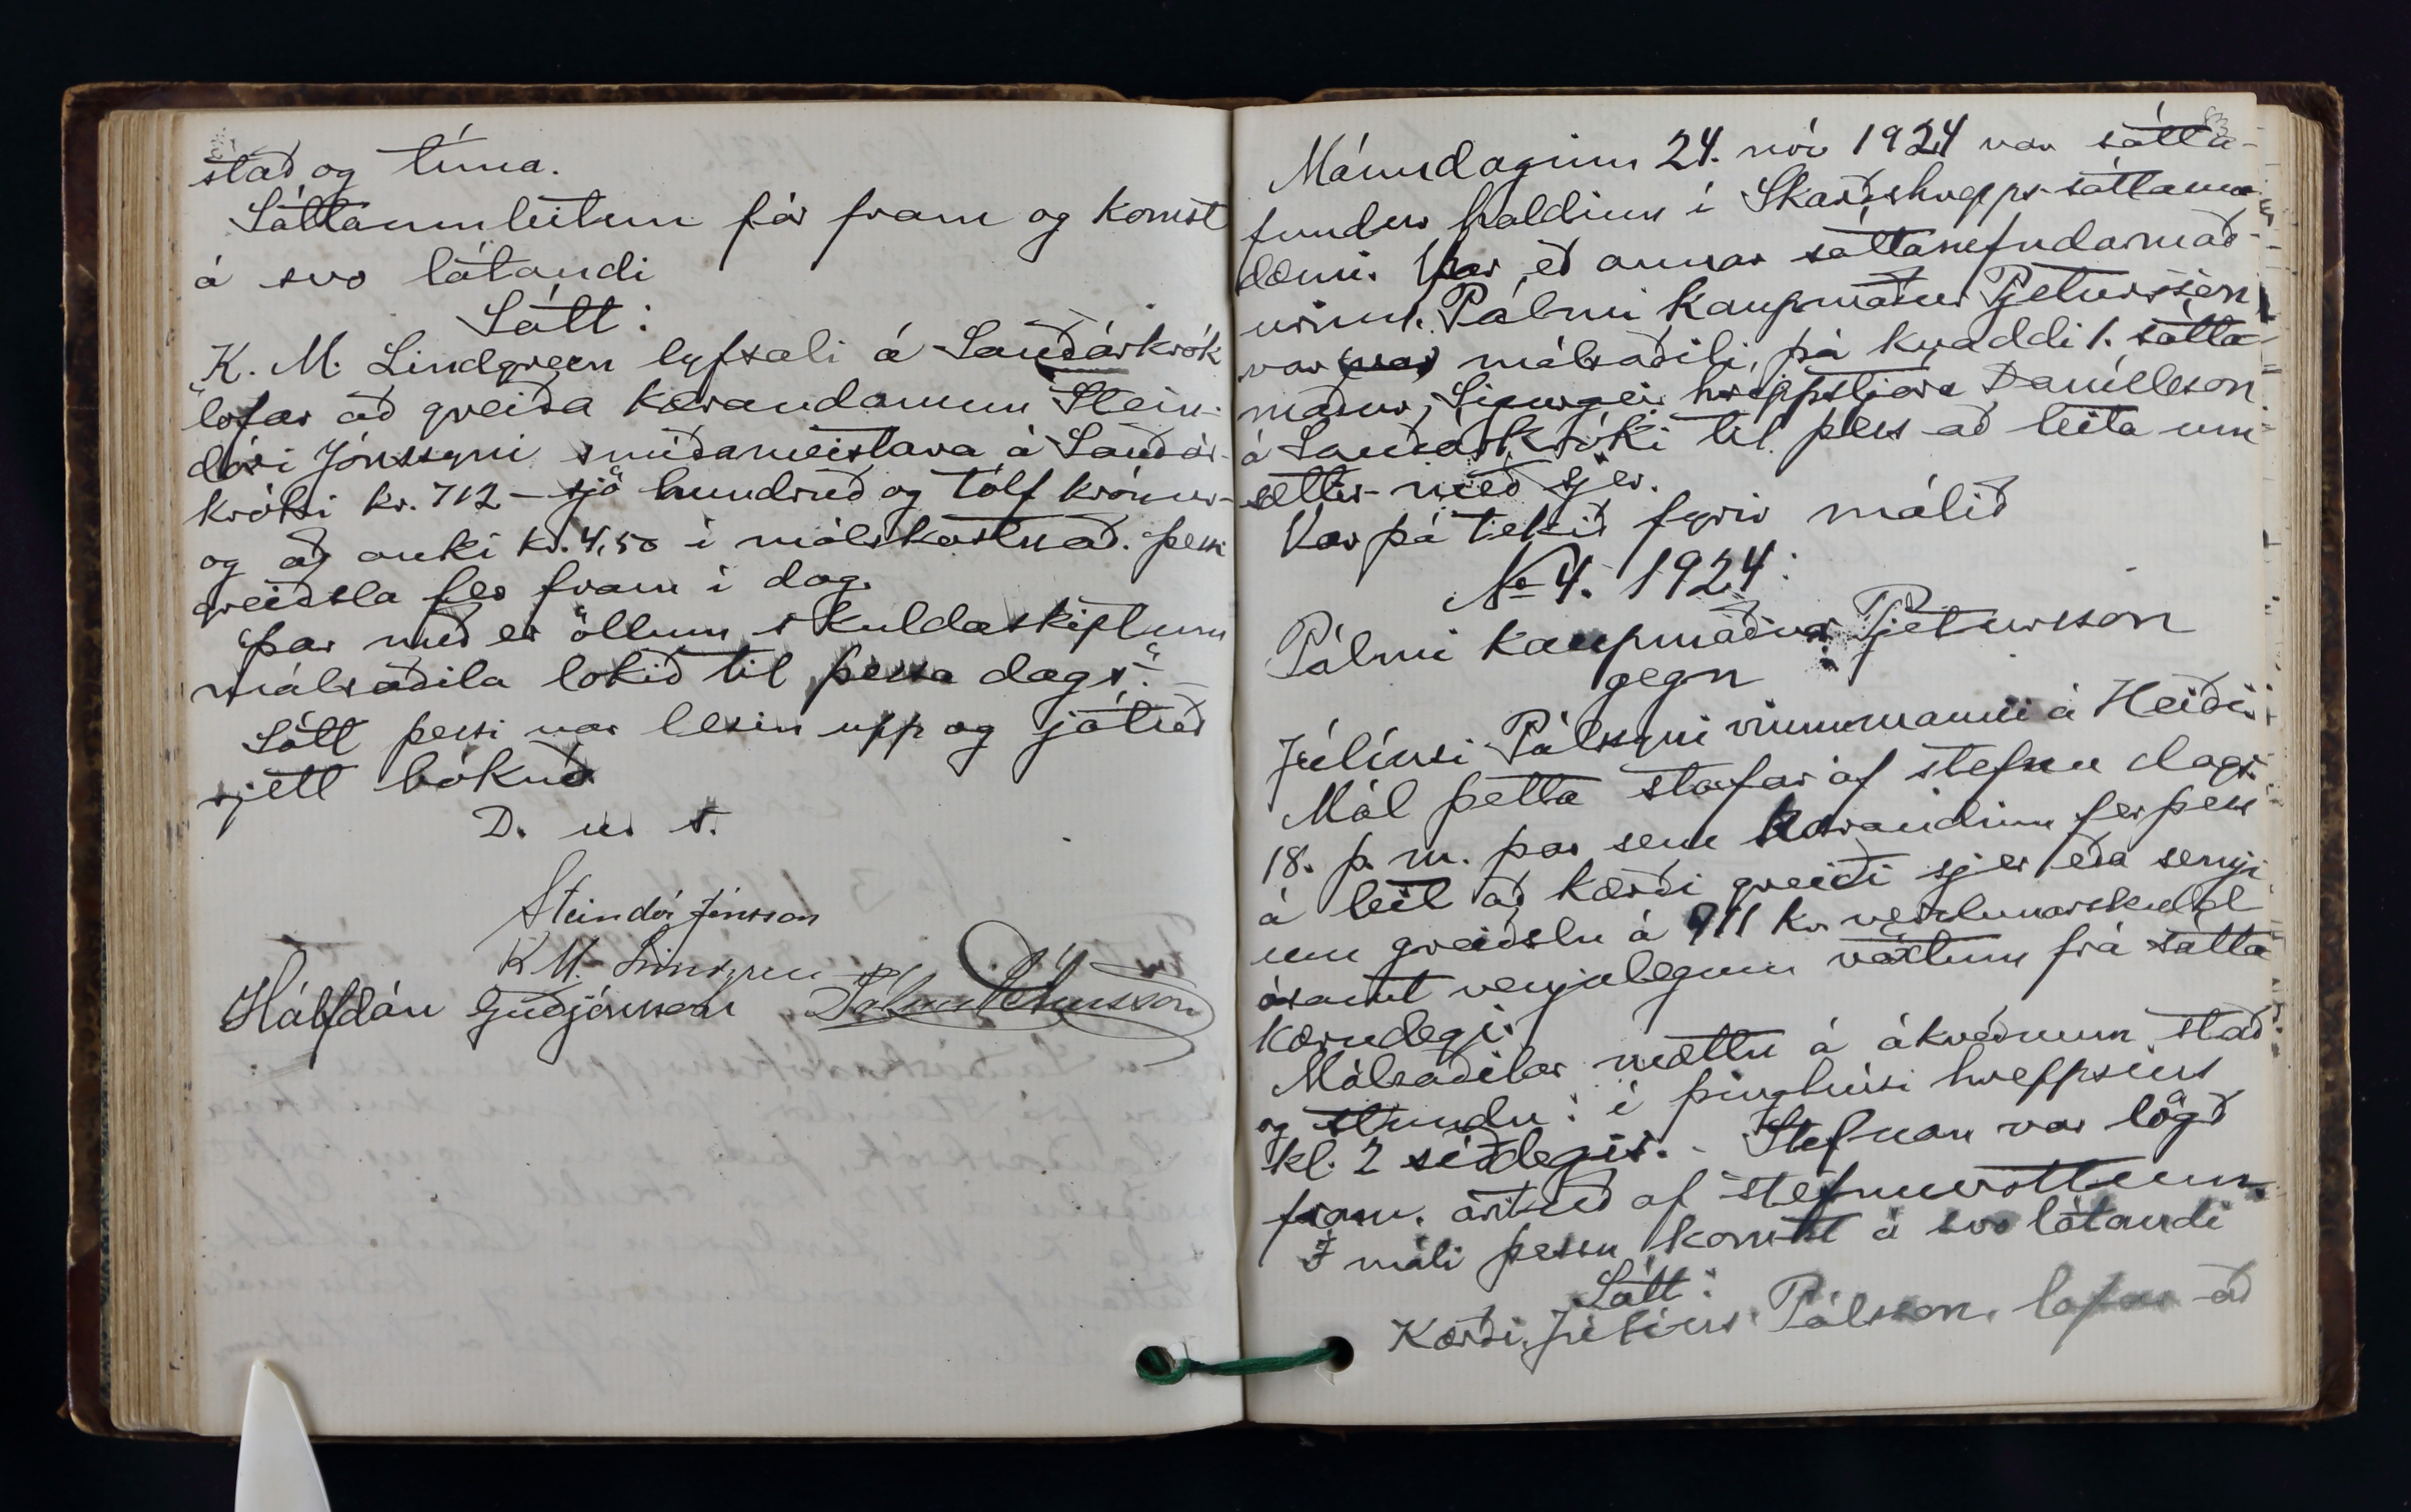 stað og tíma.
Sáttaumleitun fór fram og komst
á svo látandi
Sátt:
K. M. Lindgreen lyfsali á Sauðárkrók
"lofar að greiða kærandanum Stein-
dóri Jónssyni smiðameistara á Sauðár-
króki kr. 712 - sjö hundruð og tólf krónur -
og að auki kr. 4,50 í málskostnað. þessi
greiðsla fer fram í dag.
Þar með er öllum skuldaskiptum
málsaðila lokið til þessa dags."
Sátt þessi var lesin upp og játuð
rjett bókuð
D. u. s.
Steindór Jónsson
K M. Lindgren
Hálfdán Guðjónsson Pálmi Pétursson
Mánudaginn 24. nóv 1924 var sátta-
fundur haldinn í Skarðshrepps sáttaum-
dæmi. Þar eð annar sáttanefndarmað-
urinn. Pálmi kaupmaður Pjetursson
var (var) málsaðili, þá kvaddi 1. sátta
maður, Sigurgeir hreppstjóra Daníelsson
á Sauðárkróki til þess að leita um
sættir með sjer.
Var þá tekið fyrir málið
No 4. 1924:
Pálmi kaupmaður Pjetursson
gegn
Júlíusi Pálssyni vinnumanni á Heiði.
Mál þetta stafar af stefnu dags.
18. þ. m. þar sem kærandinn fer þess
á leit að kærði greiði sjer eða semji
um greiðslu á 911 kr. verslunarskuld
ásamt venjulegum vöxtum frá sátta
kærudegi.
Málsaðilar mættu á ákveðnum stað
og stundu: í þinghúsi hreppsins
kl. 2 síðdegis. - Stefnan var lögð
fram. árituð af stefnuvottum.
Í máli þessu komst á svo látandi
Sátt:
Kærði, Júlíus Pálsson, lofar að